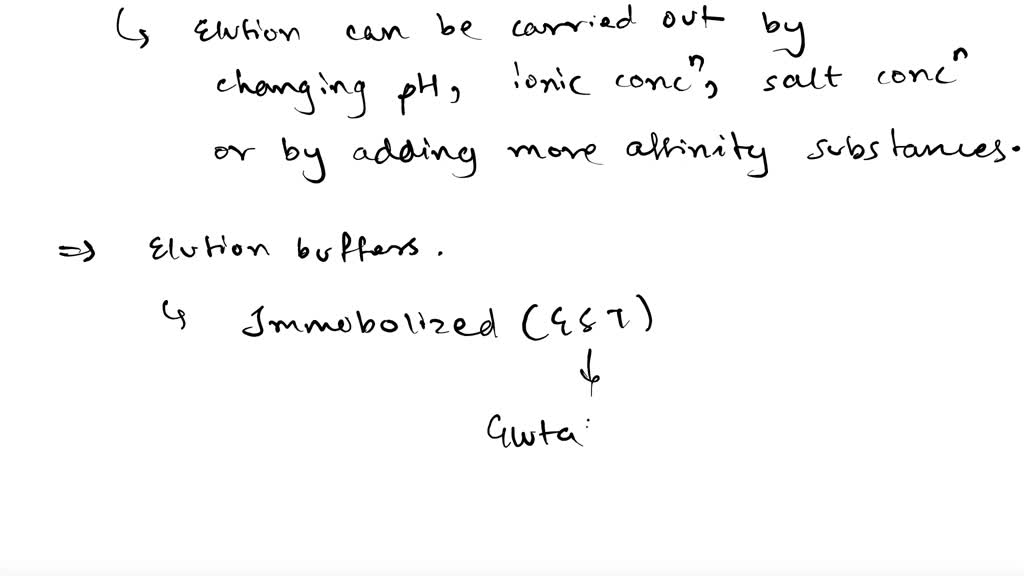 ↳ Elution can be carried out by
changing pH, ionic concⁿ, salt concⁿ
or by adding more affinity substances.
⇒ Elution buffers.
↳ Immobolized (GST)
↓
Gluta